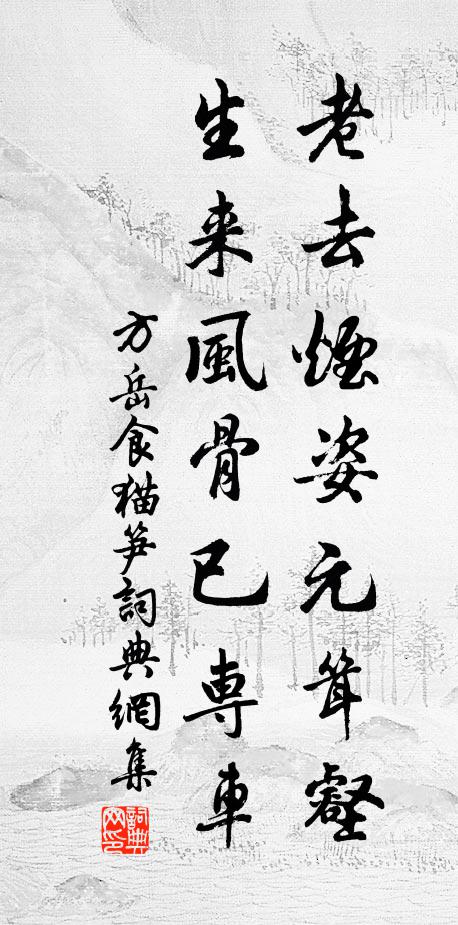 老去煙姿元耸壑
生来風骨已専車
方岳食猫笋詞典網集
詞典網印